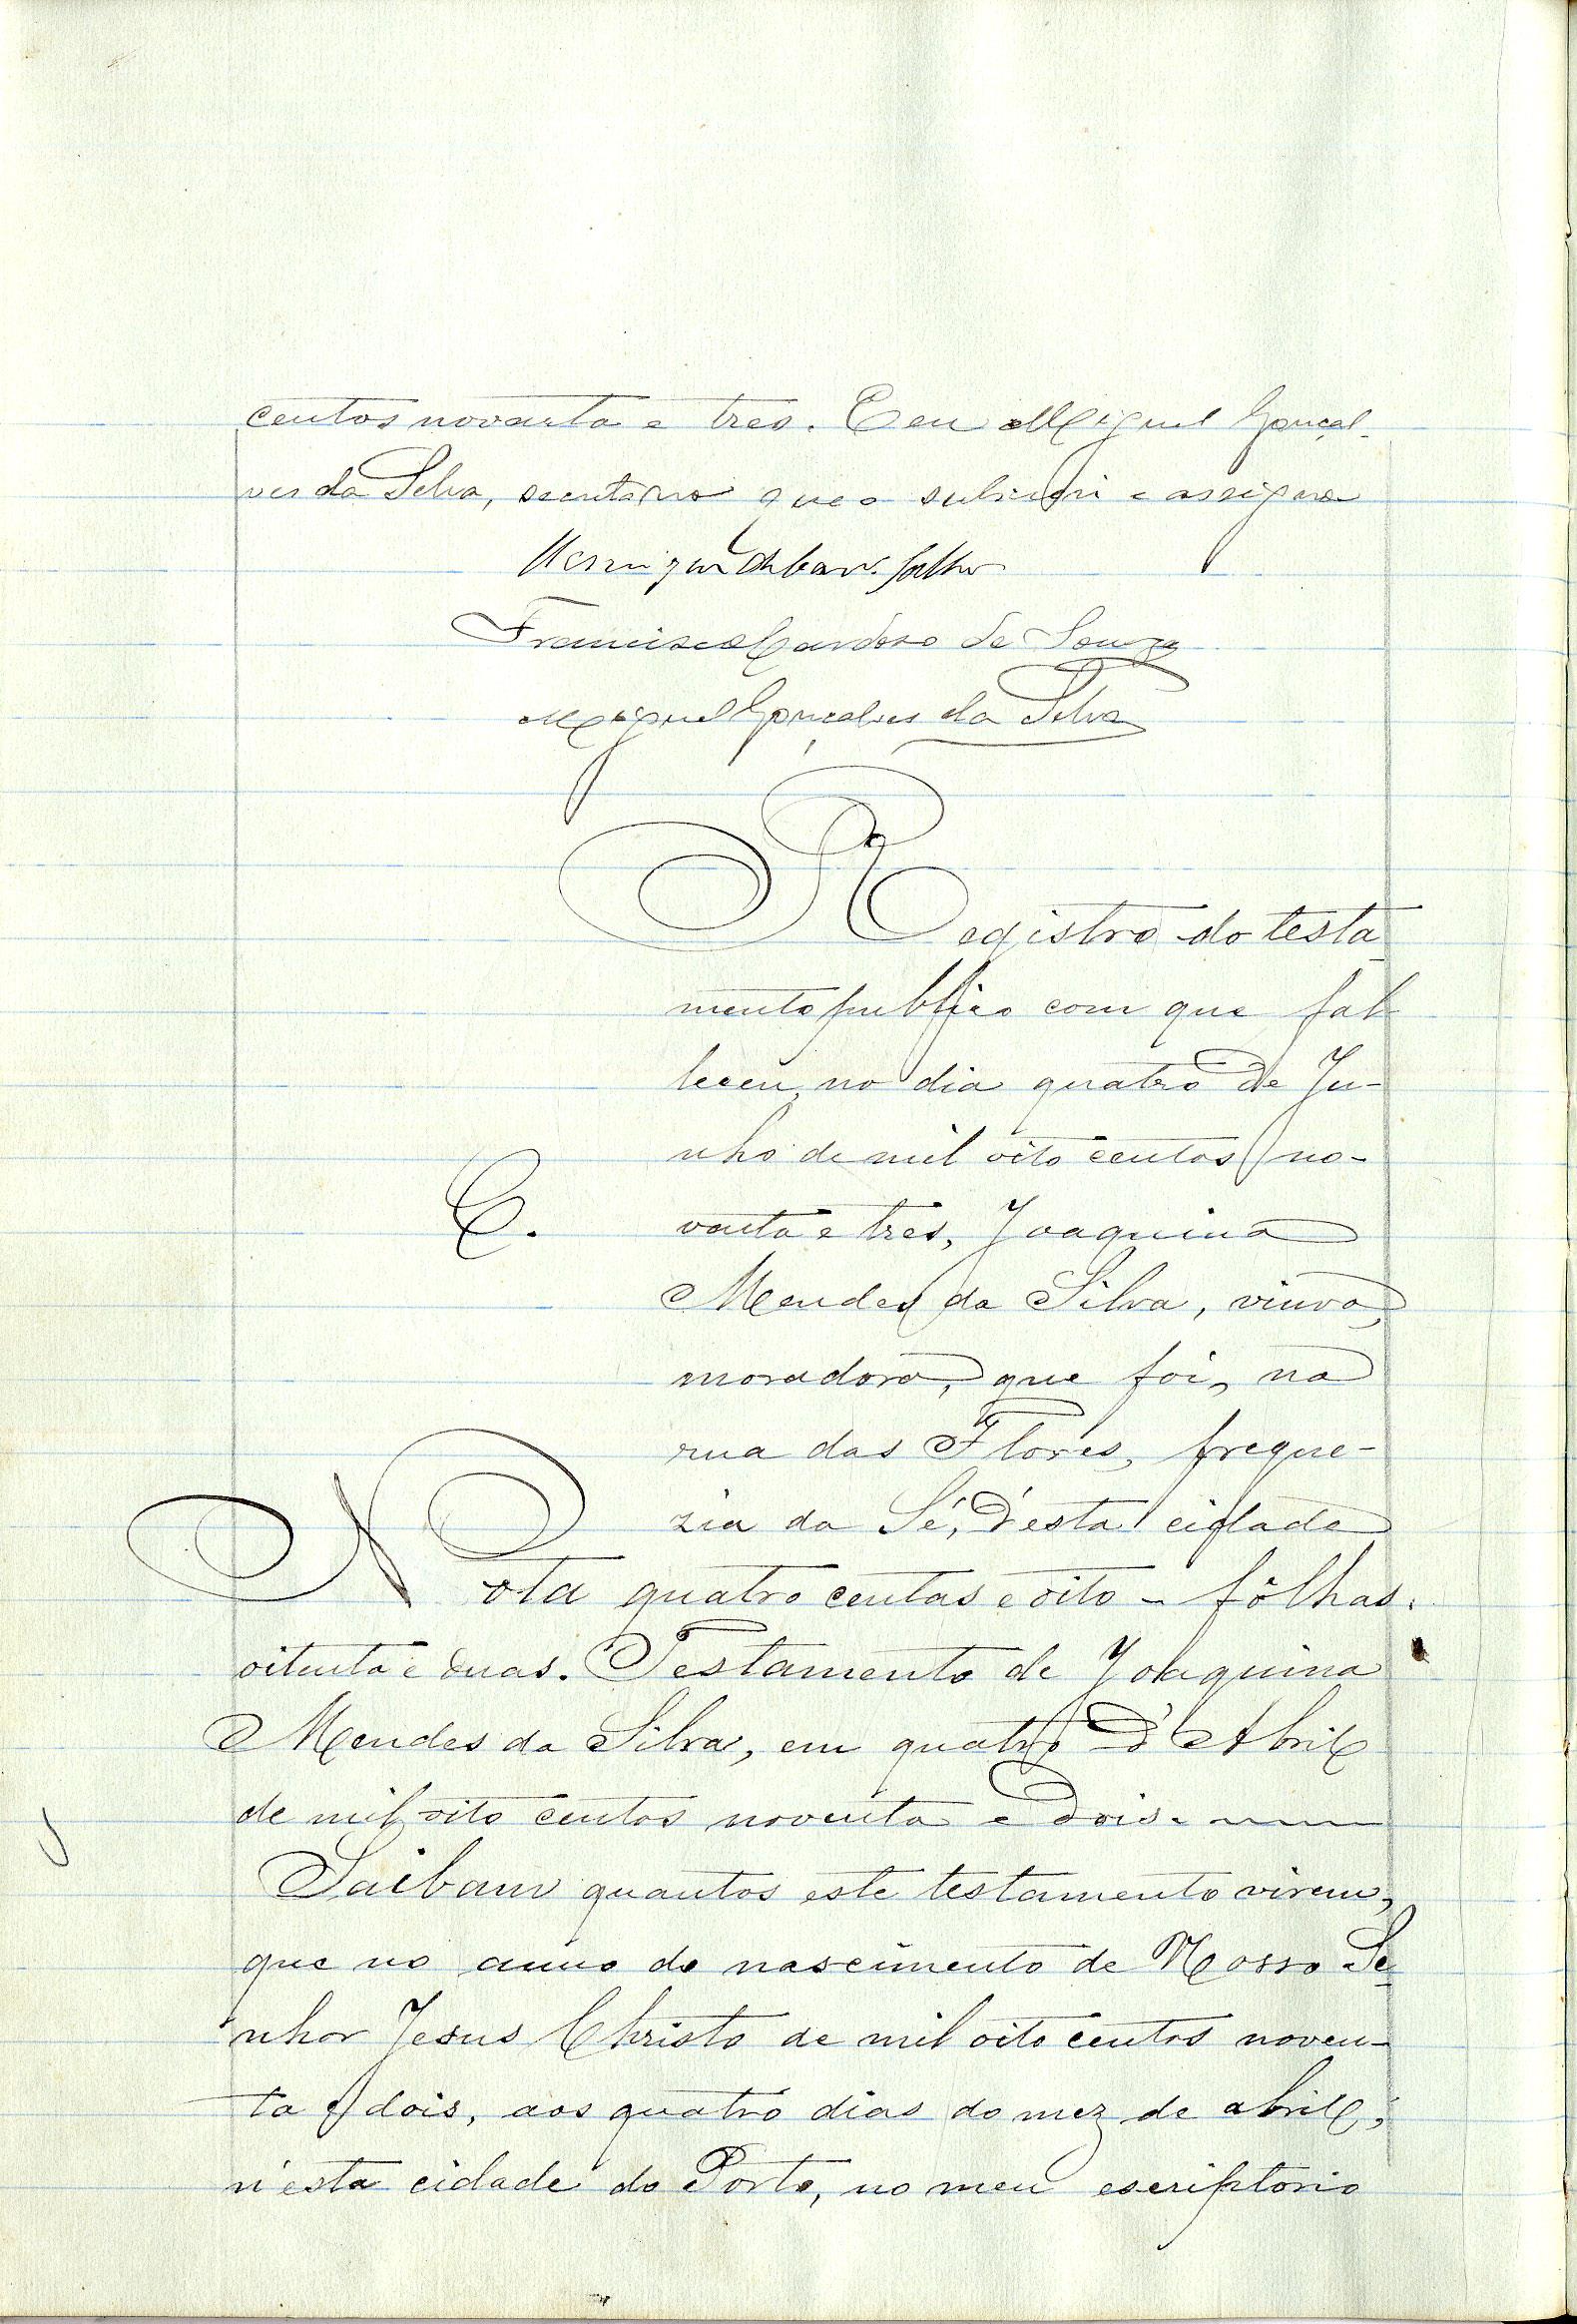 centos novanta e tres. E eu Miguel Gonçal-
ves da Silva, secretario que o subscrevi e assigno
Francisco Cardoso de Souza
Miguel Gonçalves da Silva
Registro do testa
mento publico com que fal
leceu, no dia quatro de Ju-
nho de mil oito centos no-
vanta e tres, Joaquina
C.
Mendes da Silva, viuva,
moradora, que foi, na
rua das Flores, fregue-
zia da Sé, d'esta cidade
Nota quatro centas e oito - fôlhas
oitenta e duas. Testamento de Joaquina
Mendes da Silva, em quatro d'Abril
de mil oito centos noventa e dois.
Saibam quantos este testamento virem,
que no anno do nascimento de Nosso Se
nhor Jesus Christo de mil oito centos noven-
ta e dois, aos quatro dias do mez de abril,
n'esta cidade do Porto, no meu escriptorio